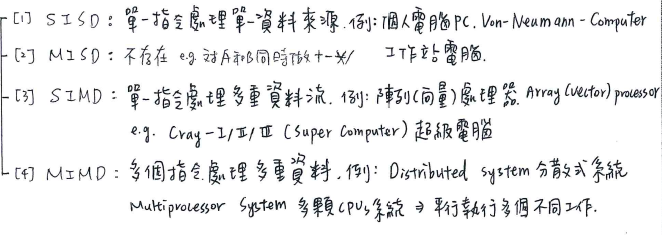 [1] SISD：單一指令處理單一資料來源. 例: 個人電腦PC. Von-Neumann-Computer
[2] MISD：不存在 e.g 對A和B同時做+-×/ 工作站電腦.
[3] SIMD：單一指令處理多重資料流. 例: 陣列(向量)處理器. Array (Vector) processor
e.g. Cray-I/II/III (Super Computer) 超級電腦
[4] MIMD：多個指令處理多重資料. 例: Distributed system 分散式系統
Multiprocessor System 多顆CPUs系統 ⇒ 平行執行多個不同工作.